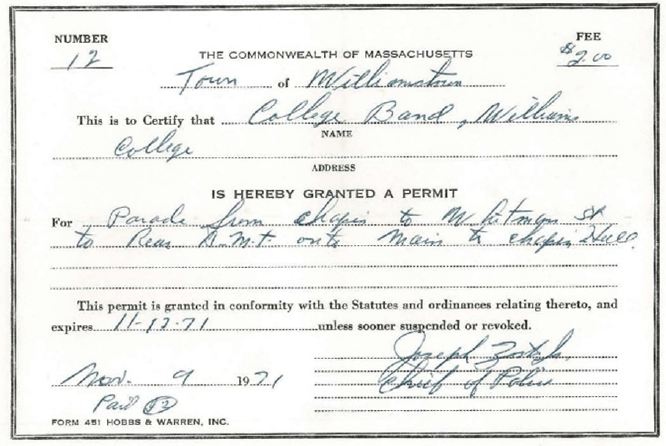 NUMBER
12
FEE
$2.00
THE COMMONWEALTH OF MASSACHUSETTS
Town of Williamstown
This is to Certify that College Band, Williams
NAME
College
ADDRESS
IS HEREBY GRANTED A PERMIT
For Parade from chapin to Whitman St
to Rear A.M.T. onto Main to chapin Hall.
This permit is granted in conformity with the Statutes and ordinances relating thereto, and
expires 11-12-71 unless sooner suspended or revoked.
Joseph
Chief of Police
Nov. 9 1971
Paid $2
FORM 451 HOBBS & WARREN, INC.